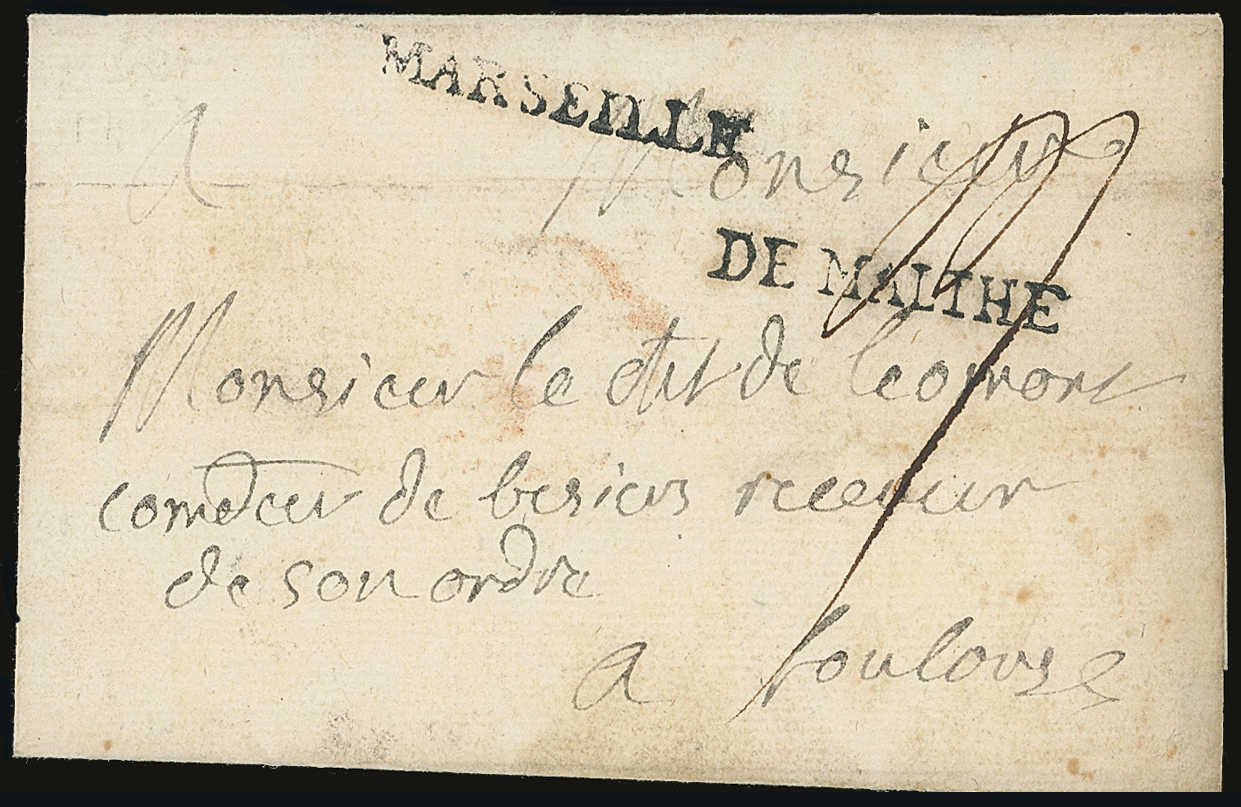 MARSEILLE
A Monsieur
DE MALTHE
Monsieur le de
comdeur de besiers receveur
de son ordre
a toulouse